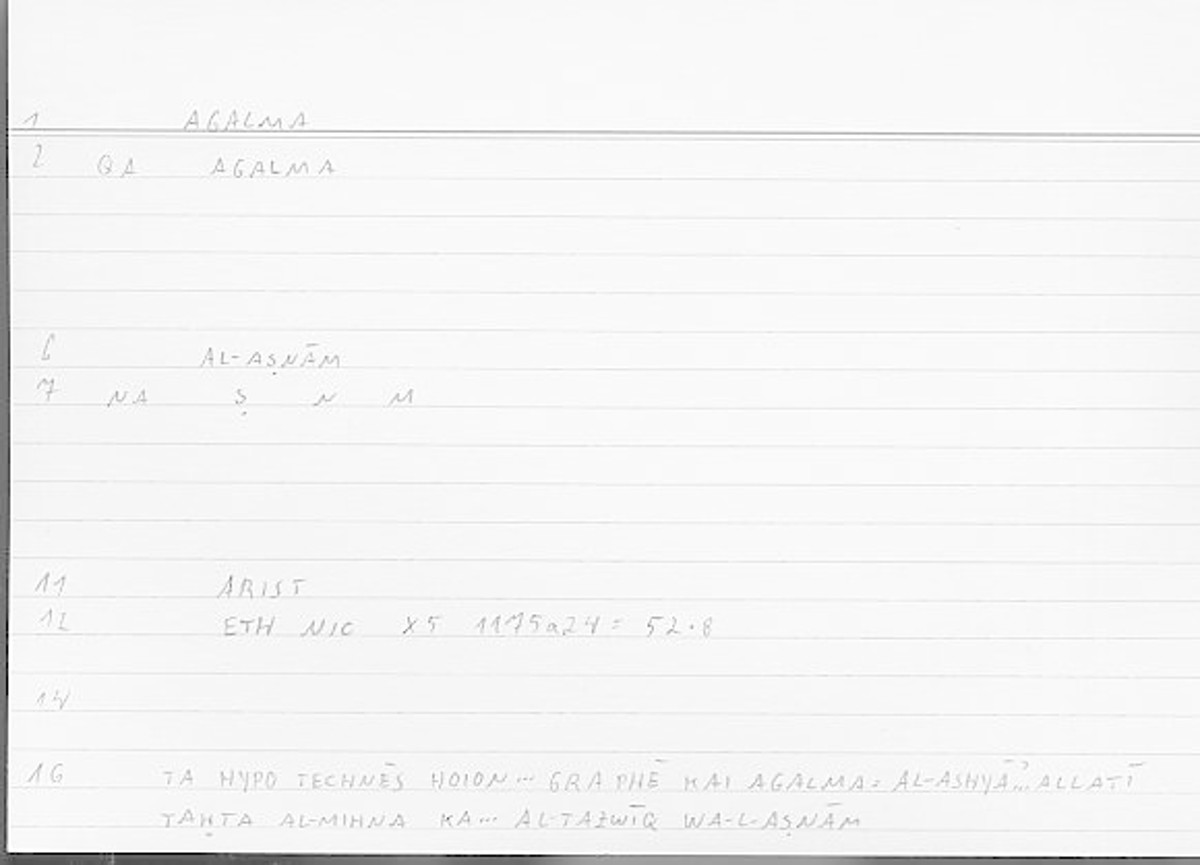 1 AGALMA
2 QA AGALMA
6 AL-AṢNĀM
7 NA Ṣ N M
11 ARIST
12 ETH NIC X5 1175a24 = 52.8
14
16 TA HYPO TECHNĒS HOION... GRAPHĒ KAI AGALMA = AL-ASHYĀʾ... ALLATĪ
TAḤTA AL-MIHNA KA... AL-TAZWĪQ WA-L-AṢNĀM